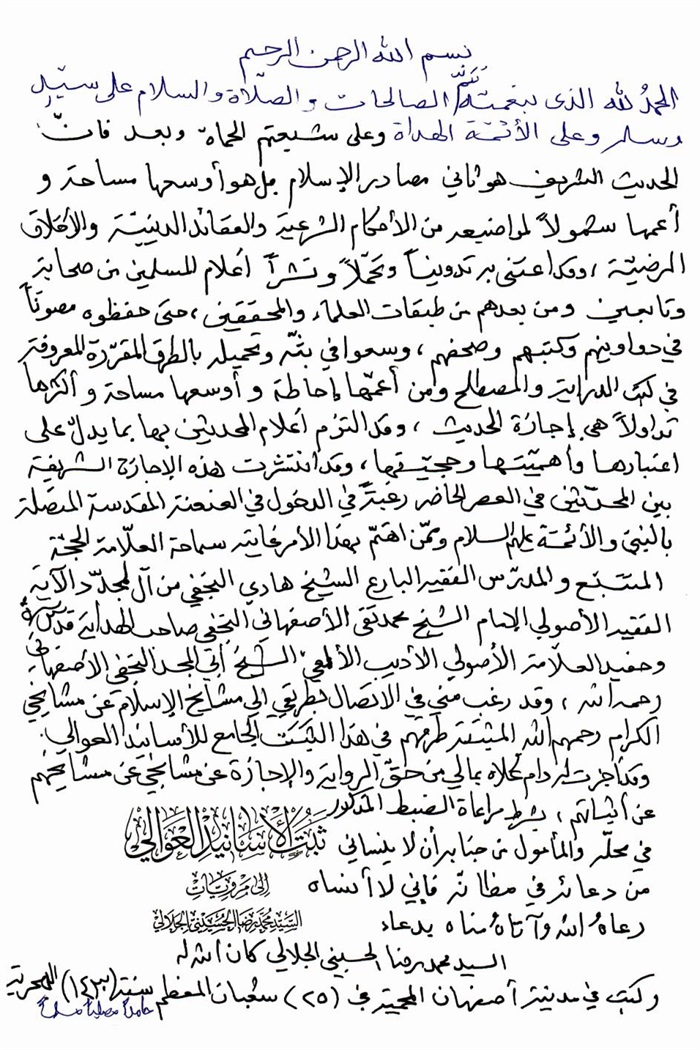 بسم الله الرحمن الرحيم
الحمدُ لله الذي بنعمته تتمّ الصالحات والصّلاة والسلام على سيّدِ
وسلم وعلى الأئمّة الهداة وعلى شيعتهم الحماة وبعد فانّ
الحديث الشريف هو ثاني مصادر الإسلام بل هو أوسعها مساحة و
أعمها شمولاً لمواضيعه من الأحكام الشرعية والعقائد الدينيّة والأخلاق
المرضيّة ، وقد اعتنى به تدويناً وتحمّلاً ونشراً أعلام المسلمين من صحابة
وتابعين ومن بعدهم من طبقات العلماء والمحققين ، حتى حفظوه مصوناً
في دواوينهم وكتبهم وصحفهم ، وسعوا في بثّه وتحميله بالطرق المقرّرة المعروفة
في كتب الدراية والمصطلح ومن أعمّها إحاطة وأوسعها مساحة وأكثرها
تداولاً هي إجازة الحديث ، وقد التزم أعلام المحدثين بها بما يدلّ على
اعتبارها وأهميّتها وحجيّتها ، وقد انتشرت هذه الإجازة الشريفة
بين المحدّثين في العصر الحاضر رغبةً في الدخول في العنعنة المقدسة المتصلة
بالنبي والأئمة عليهم السلام وممّن اهتمّ بهذا الأمر غايته سماحة العلّامة الحجة
المتتبع والمدرّس الفقيه البارع الشيخ هادي النجفي من آل المجدّد الآية
الفقيه الأصولي الإمام الشيخ محمد تقي الأصفهاني النجفي صاحب الهداية قدس سرّه
وحفيد العلّامة الأصولي الأديب الألمعي الشيخ أبي المجد النجفي الأصفهاني
رحمه الله ، وقد رغب منّي في الاتصال بطريقي إلى مشايخ الإسلام عن مشايخي
الكرام رحمهم الله المثبتة طرقهم في هذا الثبت الجامع للأسانيد العوالي.
وقد أجزت له دام علاه بمالي من حقّ الرواية والإجازة عن مشايخي عن مشايخهم
عن أثباتهم ، بشرط مراعاة الضبط المذكور
في محلّه والمأمول من جنابه أن لا ينساني
ثبت الأسانيد العوالي
من دعائه في مظانّه فإني لا أنساه
إلى مرويات
رعاهُ الله وآتاهُ مناه بدعاء
السيد محمد رضا الحسيني الجلالي
السيد محمد رضا الحسيني الجلالي كان الله له
وكتب في مدينة أصفهان المحميّة في (٢٥) شعبان المعظم سنة الهجرية
حامداً مصلياً مسلماً